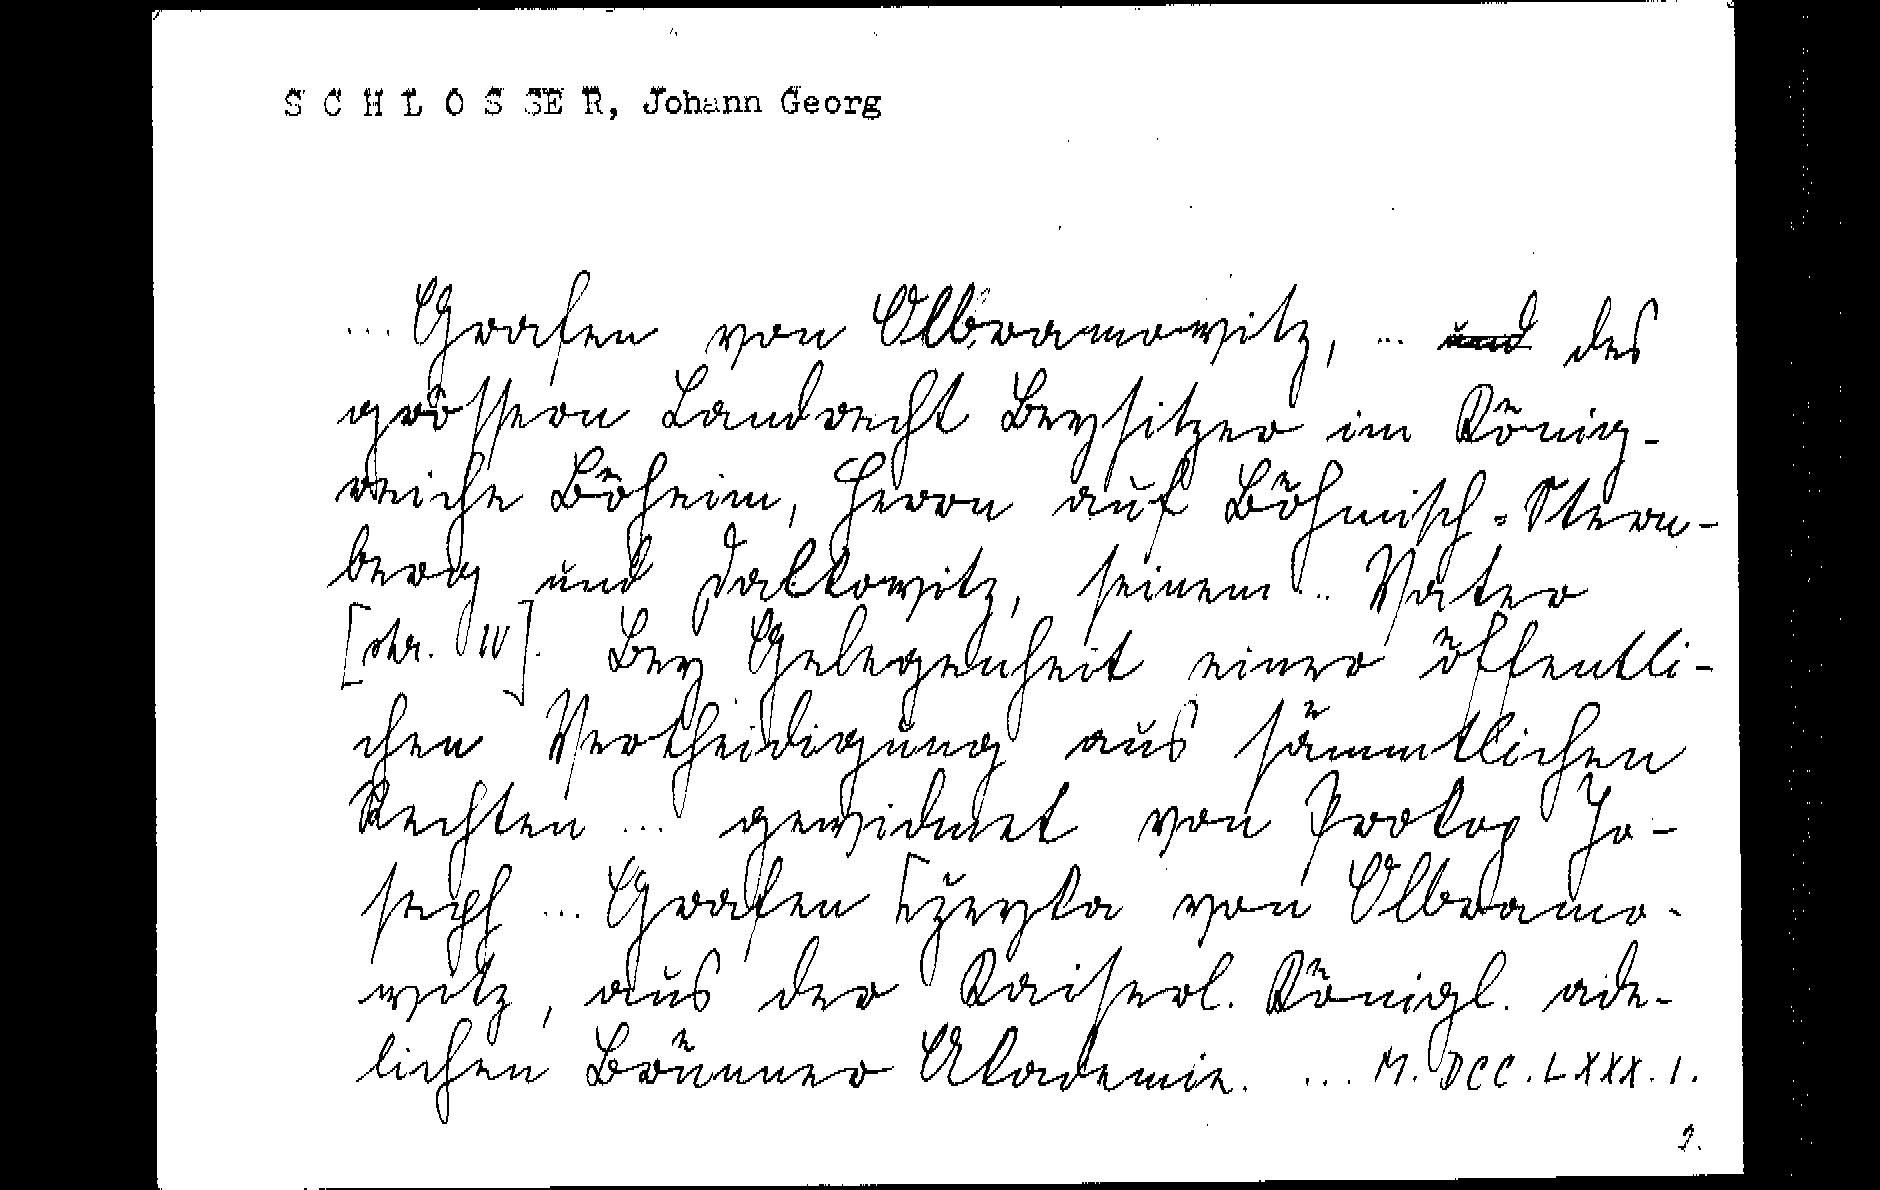 S C H L O S S E R, Johann Georg
... Grafen von Olbramowitz, ... und des
grössern Landrecht Beysitzer im König-
reiche Böheim, Herrn auf Böhmisch-Stern-
berg und Dalkowitz, seinem .. Vater
[str. IV]. Bey Gelegenheit einer öffentli-
chen Vertheidigung aus sämmtlichen
Rechten ... gewidmet von Prokop Jo-
seph ... Grafen von Olbramo-
witz, aus der Kaiserl. Königl. ade-
lichen Brünner Akademie. ... M.DCC.LXXX.I.
2.